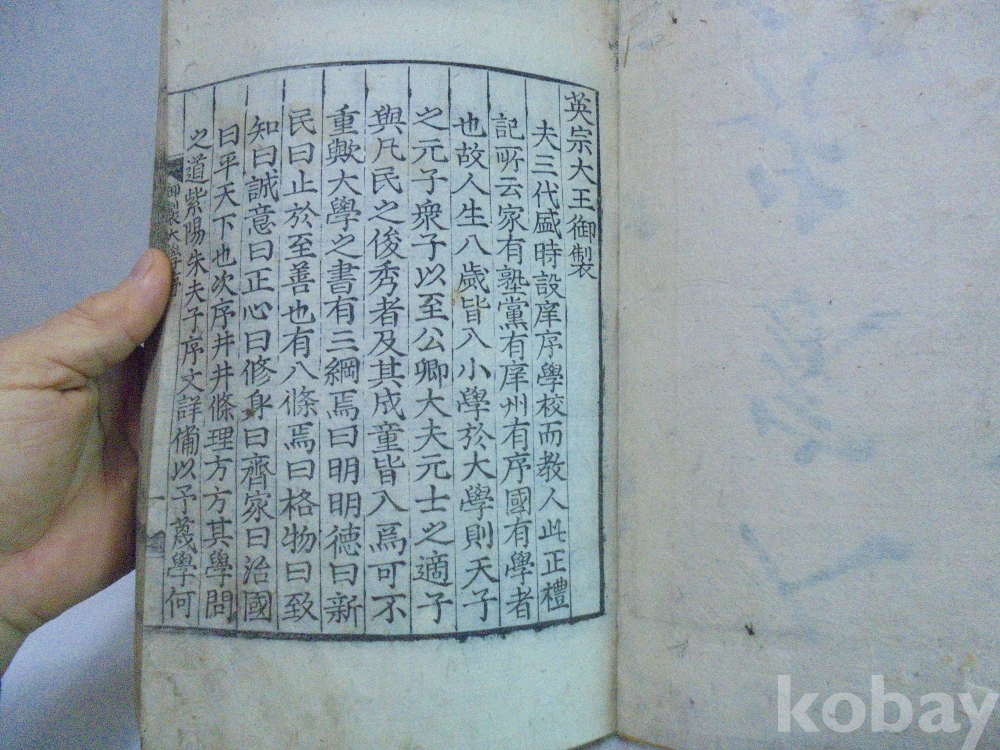 英宗大王御製
夫三代盛時設庠序學校而教人此正禮
記所云家有塾黨有庠州有序國有學者
也故人生八歲皆入小學於大學則天子
之元子衆子以至公卿大夫元士之適子
與凡民之俊秀者及其成童皆入焉可不
重歟大學之書有三綱焉曰明明德曰新
民曰止於至善也有八條焉曰格物曰致
知曰誠意曰正心曰修身曰齊家曰治國
曰平天下也次序井井條理方方其學問
之道紫陽朱夫子序文詳備以予蔑學何
御製大學序
kobay